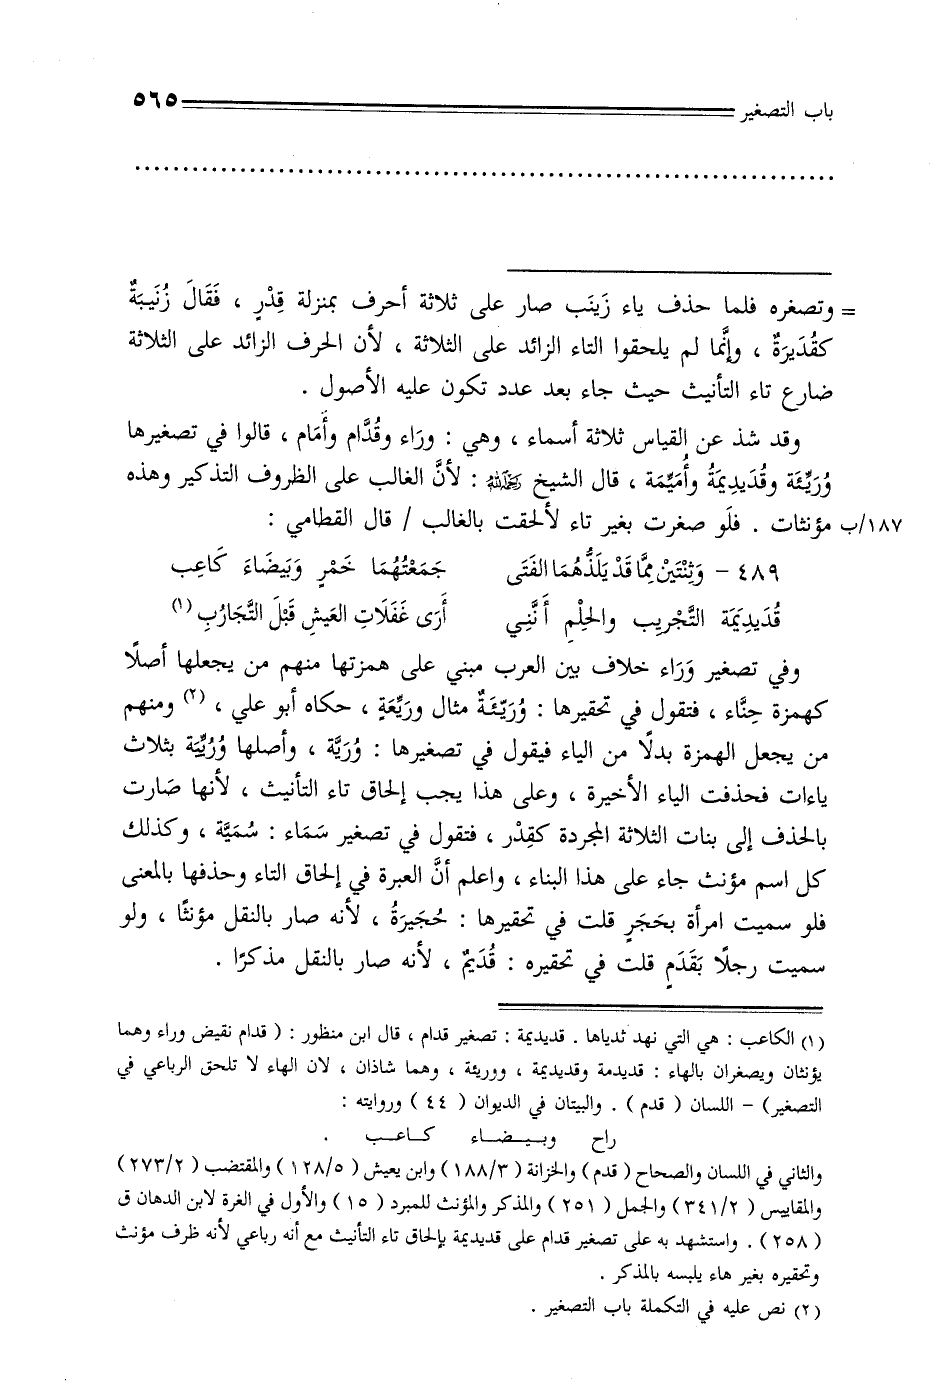 باب التصغير ٥٦٥
................................................................
= وتصغره فلما حذف ياء زَينَب صار على ثلاثة أحرف بمنزلة قِدْرٍ ، فَقَالَ زُنَيبَةٌ
كقُدَيرَةٌ ، وإنَّما لم يلحقوا التاء الزائد على الثلاثة ، لأن الحرف الزائد على الثلاثة
ضارع تاء التأنيث حيث جاء بعد عدد تكون عليه الأصول .
وقد شذ عن القياس ثلاثة أسماء ، وهي : ورَاء وقُدَّام وأَمَام ، قالوا في تصغيرها
وُرَيِّئَة وقُدَيدِيمَةُ وأُمَيِّمَة ، قال الشيخ رحمه الله : لأنَّ الغالب على الظروف التذكير وهذه
١٨٧/ب مؤنثات . فلَو صغرت بغير تاء لألحقت بالغالب / قال القطامي :
٤٨٩ - وَثِنْتَيْنِ مِمَّا قَدْ يَلَذُّهُمَا الفَتَى جَمَعْتُهُمَا خَمْرٍ وَبَيضَاءَ كَاعِبِ
قُدَيدِيمَة التَّجْرِيبِ والحِلْمِ أَنَّنِي أَرَى غَفَلَاتِ العَيشِ قَبْلَ التَّجَارُبِ (١)
وفي تصغير وَرَاء خلاف بين العرب مبني على همزتها منهم من يجعلها أصلًا
كهمزة حِنَّاء ، فتقول في تحقيرها : وُرَيِّـئَـةٌ مثال ورَيِّعَةٍ ، حكاه أبو علي ، (٢) ومنهم
من يجعل الهمزة بدلًا من الياء فيقول في تصغيرها : وُرَيَّة ، وأصلها وُرَيِّيَة بثلاث
ياءات فحذفت الياء الأخيرة ، وعلى هذا يجب إلحاق تاء التأنيث ، لأنها صَارت
بالحذف إلى بنات الثلاثة المجردة كقِدْر ، فتقول في تصغير سَمَاء : سُمَيَّة ، وكذلك
كل اسم مؤنث جاء على هذا البناء ، واعلم أنَّ العبرة في إلحاق التاء وحذفها بالمعنى
فلو سميت امرأة بحَجَرٍ قلت في تحقيرها : حُجَيرَةُ ، لأنه صار بالنقل مؤنثًا ، ولو
سميت رجلًا بَقَدَمٍ قلت في تحقيره : قُدَيمٌ ، لأنه صار بالنقل مذكرًا .
(١) الكاعب : هي التي نهد ثدياها . قديديمة : تصغير قدام ، قال ابن منظور : ( قدام نقيض وراء وهما
يؤنثان ويصغران بالهاء : قديدمة وقديديمة ، ووريئة ، وهما شاذان ، لان الهاء لا تلحق الرباعي في
التصغير) - اللسان ( قدم ) . والبيتان في الديوان ( ٤٤ ) وروايته :
راح وبـيـضـاء كـاعـب .
والثاني في اللسان والصحاح ( قدم ) والخزانة ( ١٨٨/٣ ) وابن يعيش ( ١٢٨/٥ ) والمقتضب ( ٢٧٣/٢ )
والمقاييس ( ٣٤١/٢ ) والجمل ( ٢٥١ ) والمذكر والمؤنث للمبرد ( ١٥ ) والأول في الغرة لابن الدهان ق
( ٢٥٨ ) . واستشهد به على تصغير قدام على قديديمة بإلحاق تاء التأنيث مع أنه رباعي لأنه ظرف مؤنث
وتحقيره بغير هاء يلبسه بالمذكر .
(٢) نص عليه في التكملة باب التصغير .